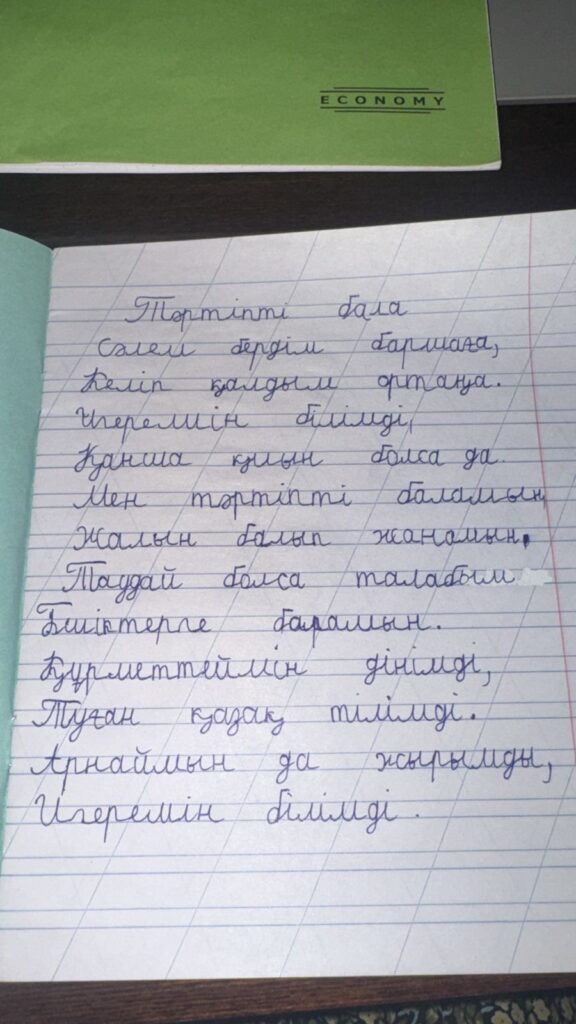 ECONOMY
Тәртіпті бала
Сәлем бердім баршаға,
Келіп қалдым ортаңа.
Игеремін білімді,
Қанша қиын болса да.
Мен тәртіпті баламын
Жалын балып жанамын,
Таудай болса талабым
Биіктерге барамын.
Құрметтеймін дінімді,
Туған қазақ тілімді.
Арнаймын да жырымды,
Игеремін білімді.